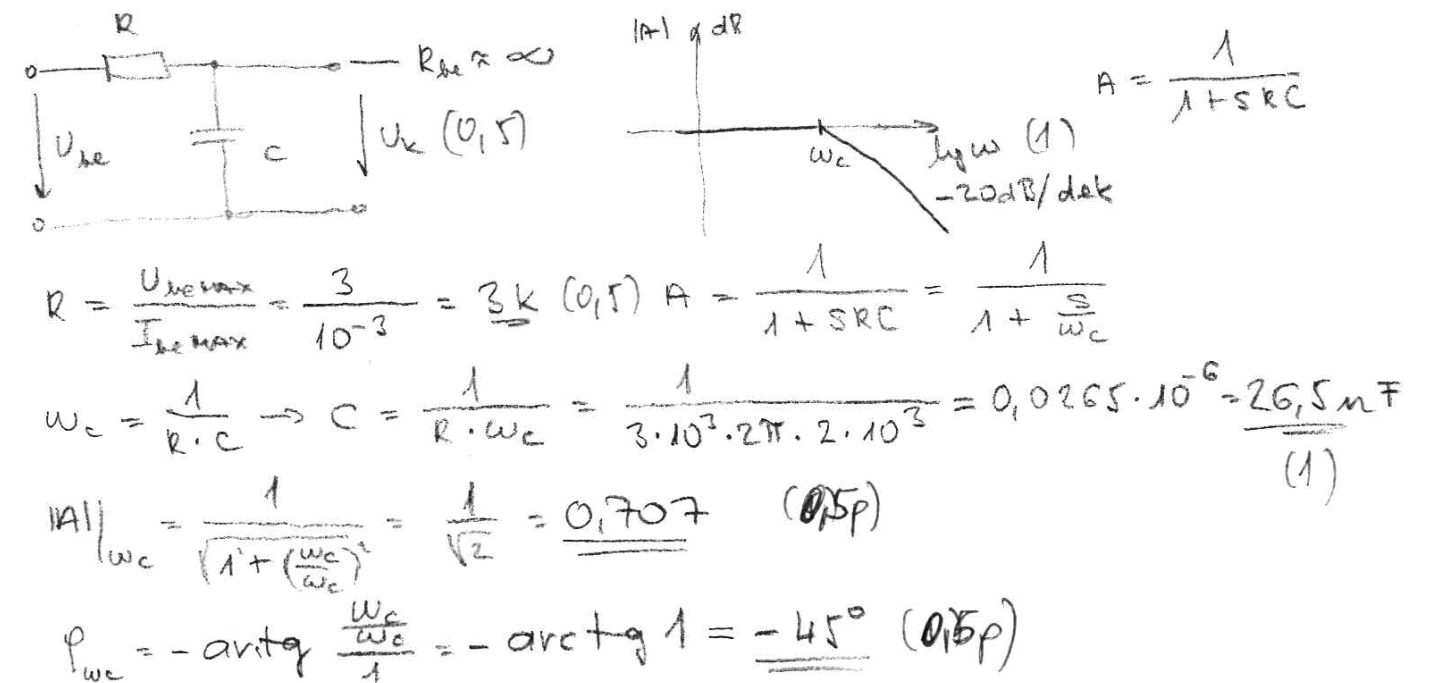 R
R_be ≈ ∞
U_be
C
U_k (0,5)
|A| dB
ω_c
lg ω (1)
-20dB/dek
A = 1/(1+SRC)
R = U_be MAX / I_be MAX = 3 / 10^-3 = 3k (0,5) A = 1/(1+SRC) = 1/(1+ S/ω_c)
ω_c = 1/(R·C) → C = 1/(R·ω_c) = 1/(3·10^3·2π·2·10^3) = 0,0265·10^-6 = 26,5 nF
(1)
|A||_ω_c = 1/√(1+(ω_c/ω_c)^2) = 1/√2 = 0,707 (0,5p)
φ_ω_c = -arctg (ω_c/ω_c)/1 = -arctg 1 = -45° (0,5p)